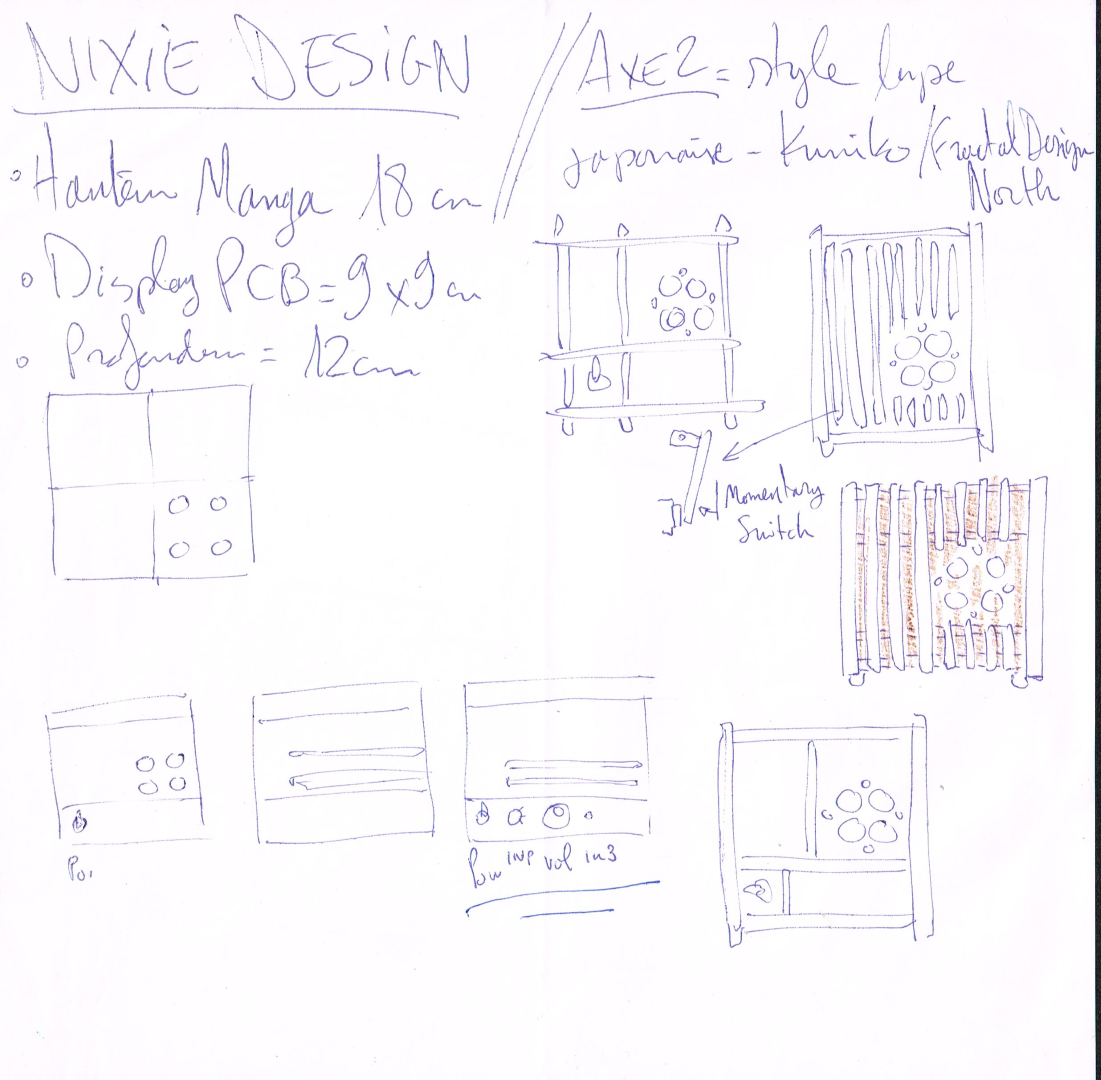 NIXIE DESIGN
• Hauteur Manga 18 cm
• Display PCB = 9 x 9 cm
• Profondeur = 12cm
// AXE2 = style
japonaise - Kumiko / Fractal Design
North
Momentary
Switch
Pow INP vol in3